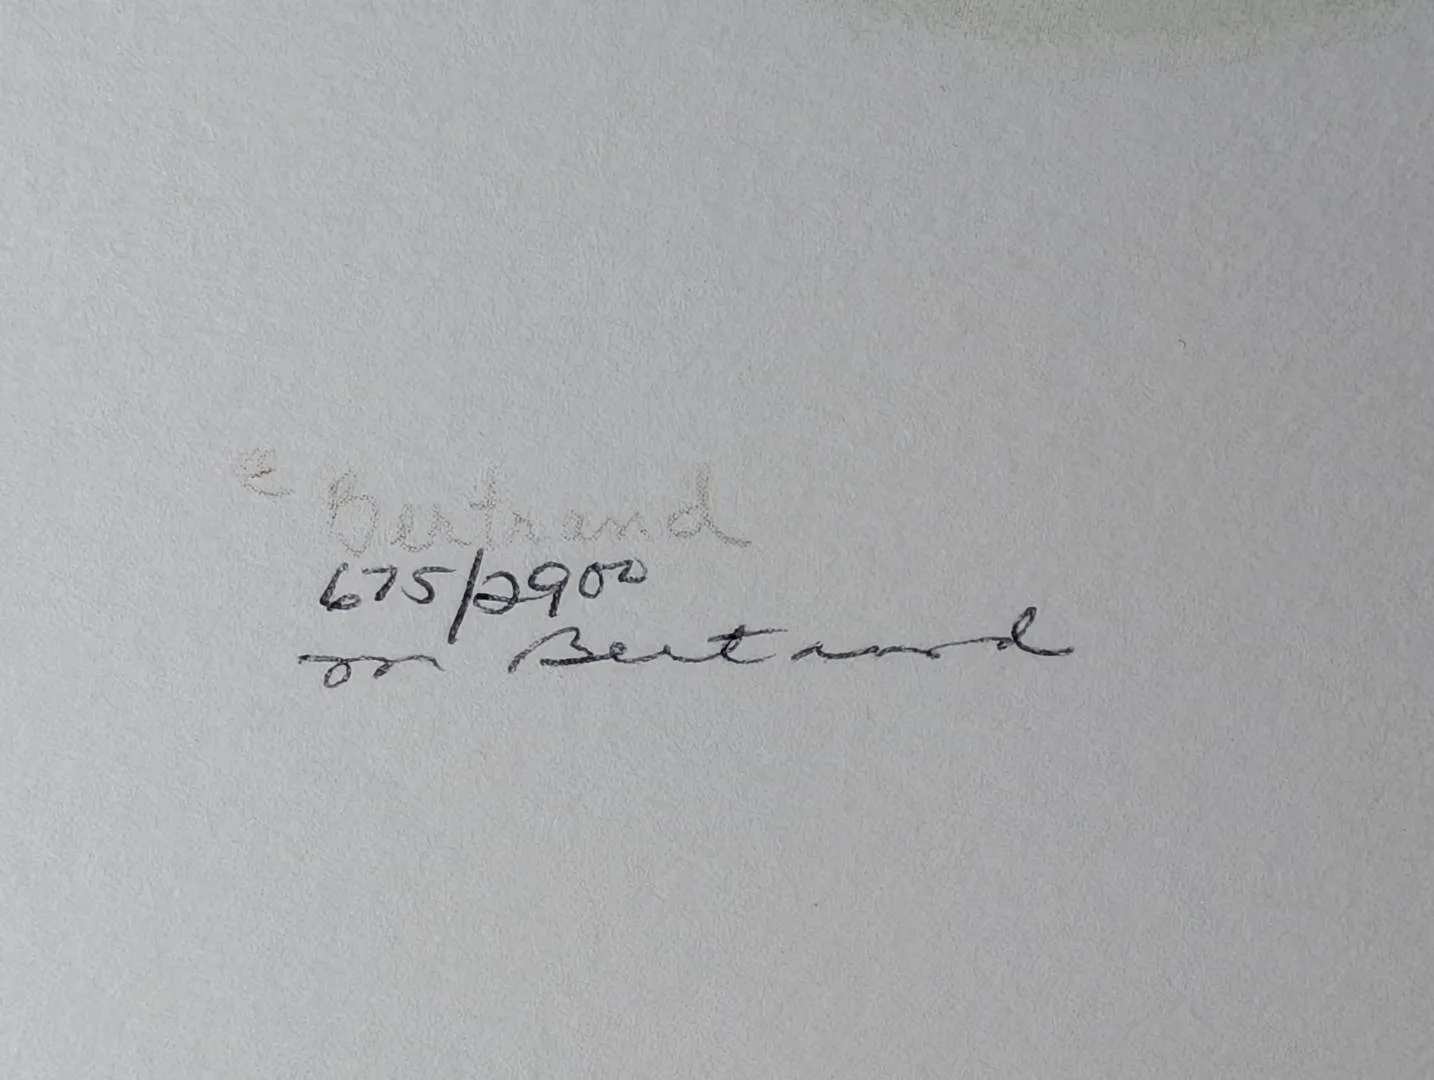 © Bertrand
675/2900
m Bertrand